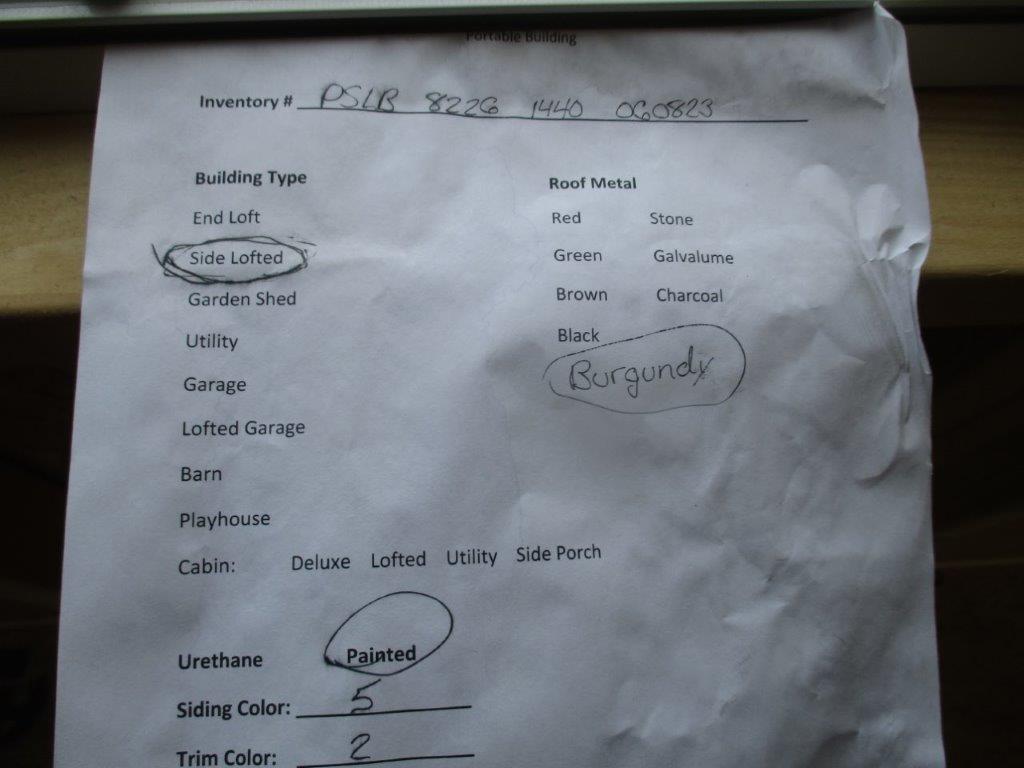 Portable Building
Inventory # PSLB 8226 1440 060823
Building Type
End Loft
Side Lofted
Garden Shed
Utility
Garage
Lofted Garage
Barn
Playhouse
Cabin: Deluxe Lofted Utility Side Porch
Roof Metal
Red Stone
Green Galvalume
Brown Charcoal
Black
Burgundy
Urethane Painted
Siding Color: 5
Trim Color: 2